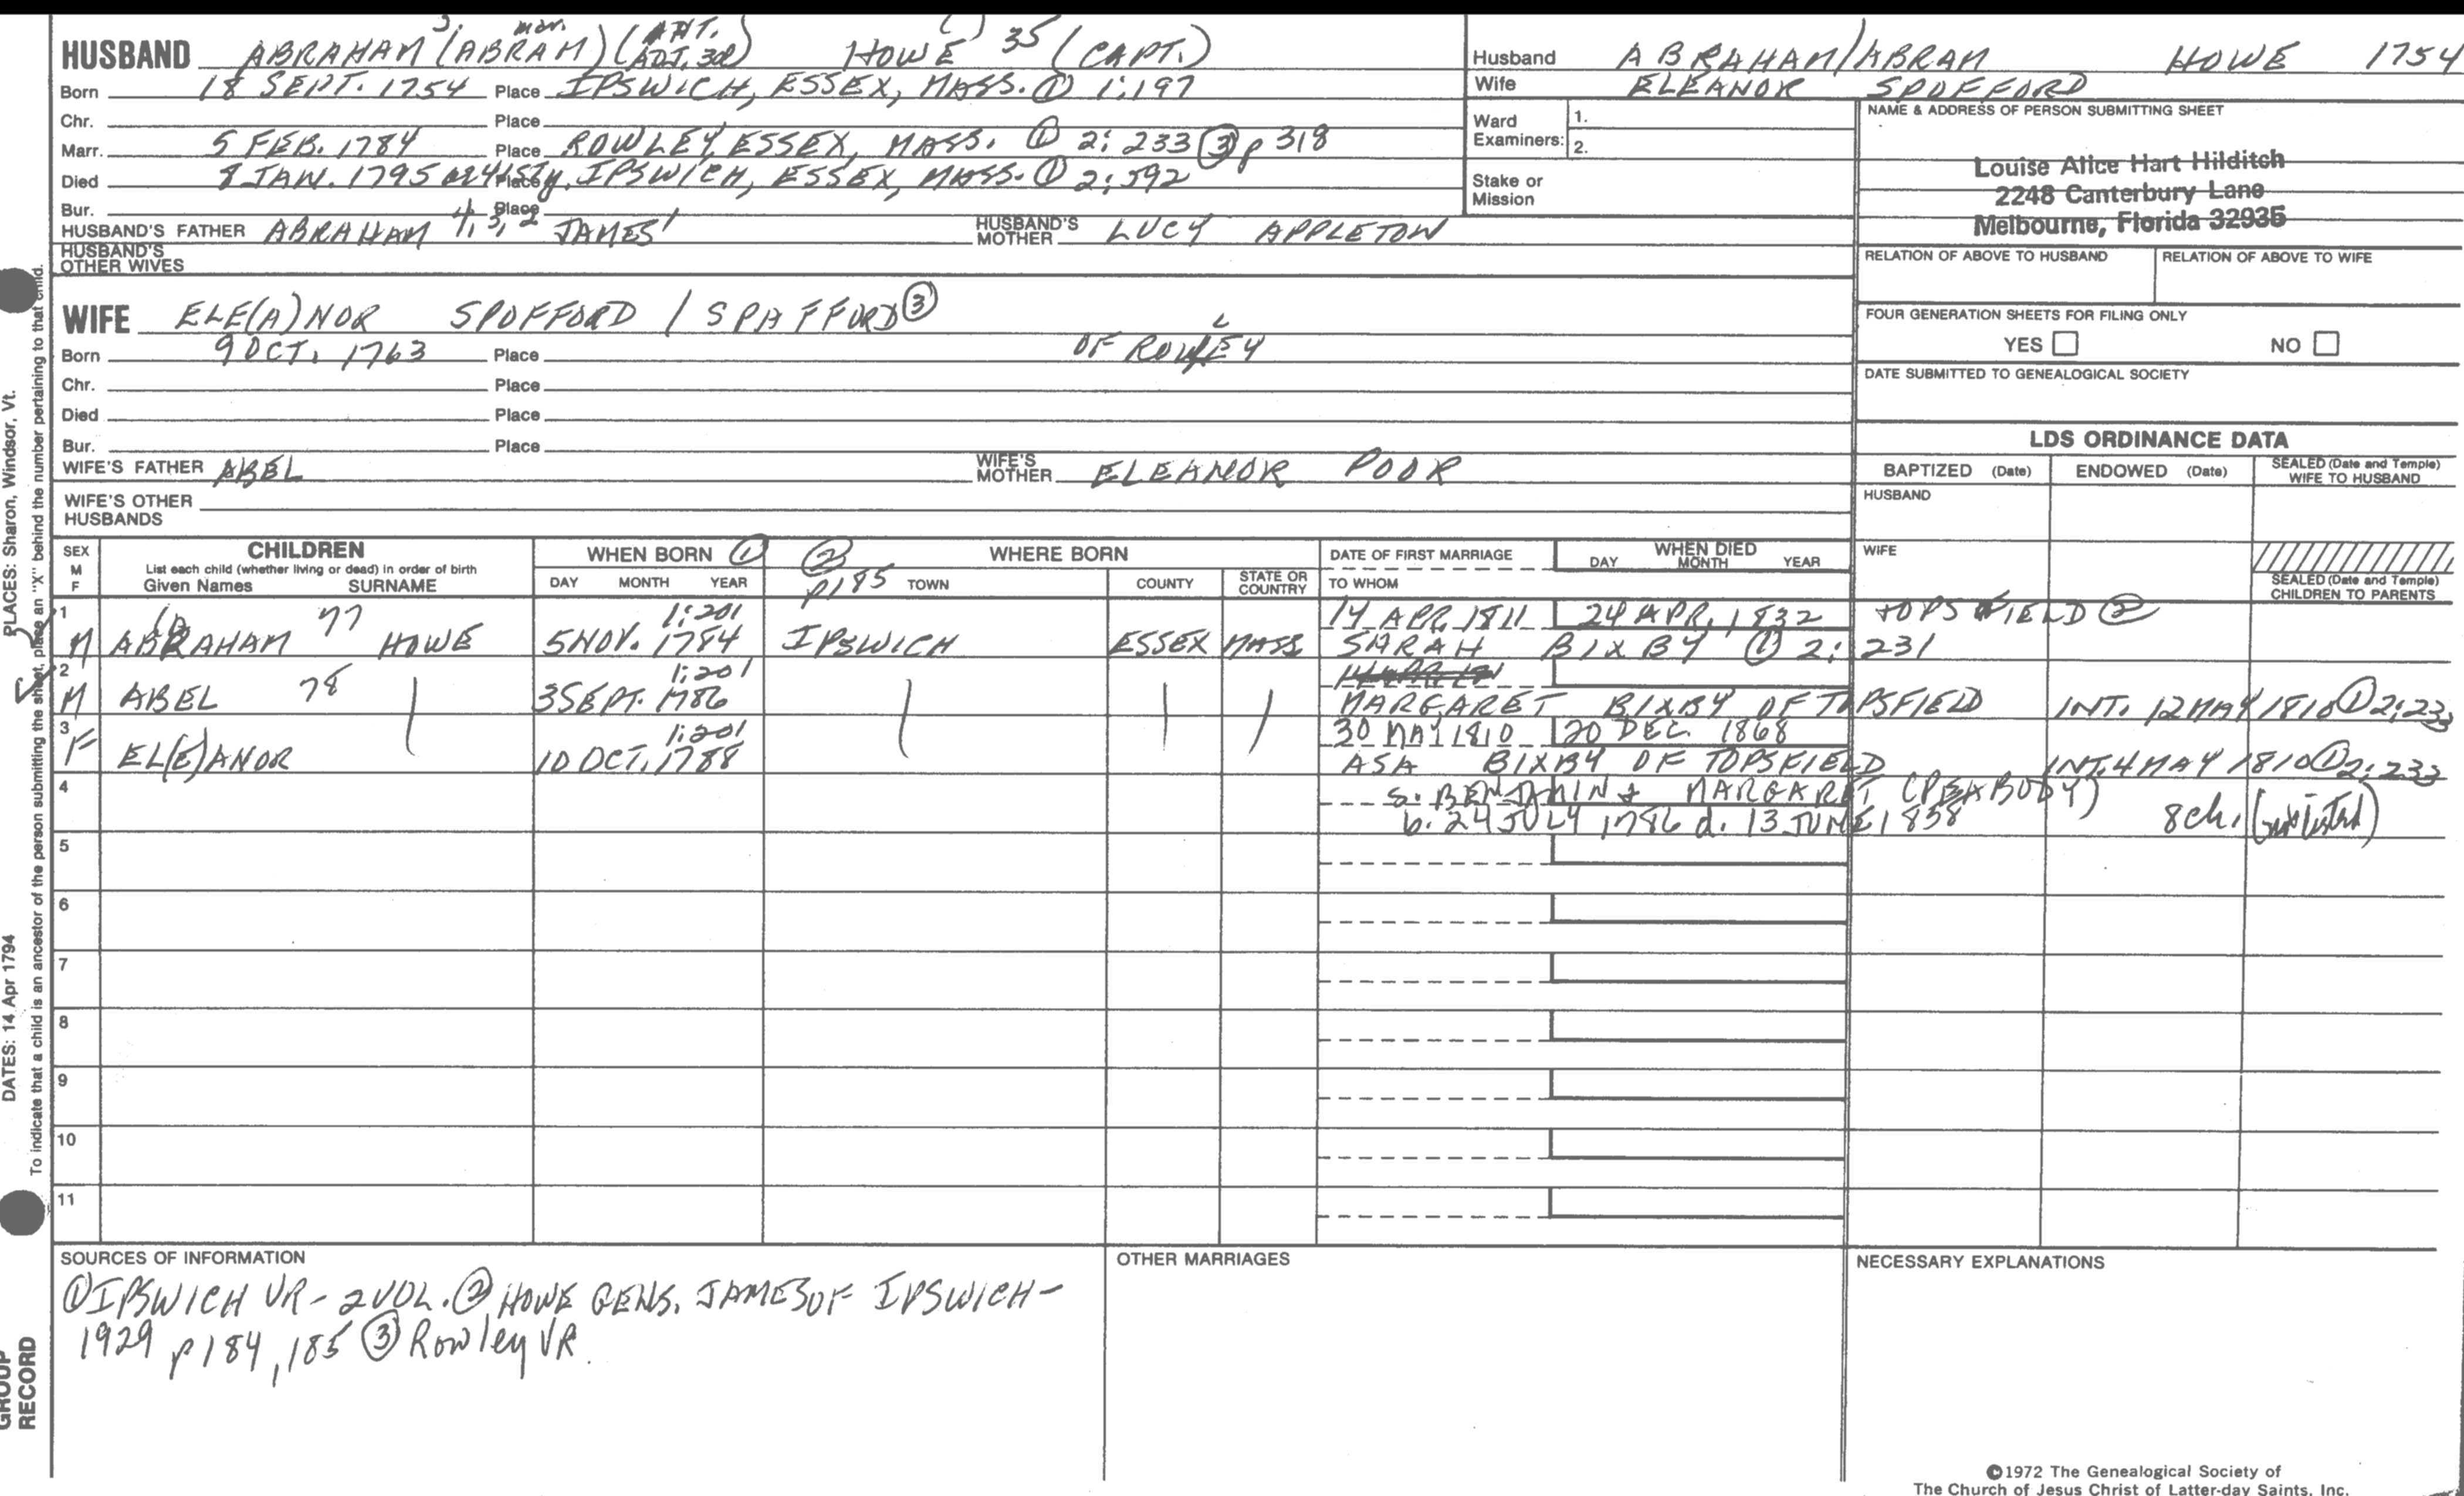 HUSBAND ABRAHAM (ABRAM) HOWE 35 (CAPT.)
Born 18 SEPT. 1754 Place IPSWICH, ESSEX, MASS. ① 1:197
Chr. Place
Marr. 5 FEB. 1784 Place ROWLEY, ESSEX, MASS. ① 2:233 ③ p 318
Died 8 JAN. 1795 Place IPSWICH, ESSEX, MASS. ① 2:592
Bur. Place
HUSBAND'S FATHER ABRAHAM 4,3,2 JAMES1 HUSBAND'S MOTHER LUCY APPLETON
HUSBAND'S OTHER WIVES
Husband ABRAHAM/ABRAM HOWE 1754
Wife ELEANOR SPOFFORD
Ward Examiners: 1.
2.
Stake or Mission
NAME & ADDRESS OF PERSON SUBMITTING SHEET
Louise Alice Hart Hilditch
2248 Canterbury Lane
Melbourne, Florida 32935
RELATION OF ABOVE TO HUSBAND RELATION OF ABOVE TO WIFE
FOUR GENERATION SHEETS FOR FILING ONLY
YES NO
DATE SUBMITTED TO GENEALOGICAL SOCIETY
WIFE ELE(A)NOR SPOFFORD / SPAFFORD ③
Born 9 OCT. 1763 Place OF ROWLEY
Chr. Place
Died Place
Bur. Place
WIFE'S FATHER ABEL WIFE'S MOTHER ELEANOR POOR
WIFE'S OTHER HUSBANDS
LDS ORDINANCE DATA
BAPTIZED (Date) ENDOWED (Date) SEALED (Date and Temple) WIFE TO HUSBAND
HUSBAND
WIFE
SEALED (Date and Temple) CHILDREN TO PARENTS
SEX M F CHILDREN WHEN BORN ① ② p185 WHERE BORN DATE OF FIRST MARRIAGE WHEN DIED
List each child (whether living or dead) in order of birth
Given Names SURNAME DAY MONTH YEAR TOWN COUNTY STATE OR COUNTRY TO WHOM DAY MONTH YEAR
1 77 1:201 14 APR. 1811 24 APR. 1832 TOPSFIELD ②
M ABRAHAM HOWE 5 NOV. 1784 IPSWICH ESSEX MASS SARAH BIXBY ① 2:231
2 78 1:201
M ABEL 3 SEPT. 1786 MARGARET BIXBY OF TOPSFIELD INT. 12 MAY 1810 ① 2:233
3 1:201 30 MAY 1810 20 DEC. 1868
F EL(E)ANOR 10 OCT. 1788 ASA BIXBY OF TOPSFIELD INT. 4 MAY 1810 ① 2:233
4 s. BENJAMIN & MARGARET (PEABODY)
b. 24 JULY 1786 d. 13 JUNE 1858 8 ch.
5
6
7
8
9
10
11
SOURCES OF INFORMATION
① IPSWICH VR - 2 VOL. ② HOWE GENS. JAMES OF IPSWICH -
1929 p184, 185 ③ Rowley VR.
OTHER MARRIAGES
NECESSARY EXPLANATIONS
©1972 The Genealogical Society of
The Church of Jesus Christ of Latter-day Saints, Inc.
PLACES: Sharon, Windsor, Vt.
DATES: 14 Apr 1794
To indicate that a child is an ancestor of the person submitting the sheet, place an "X" behind the number pertaining to that child.
GROUP
RECORD